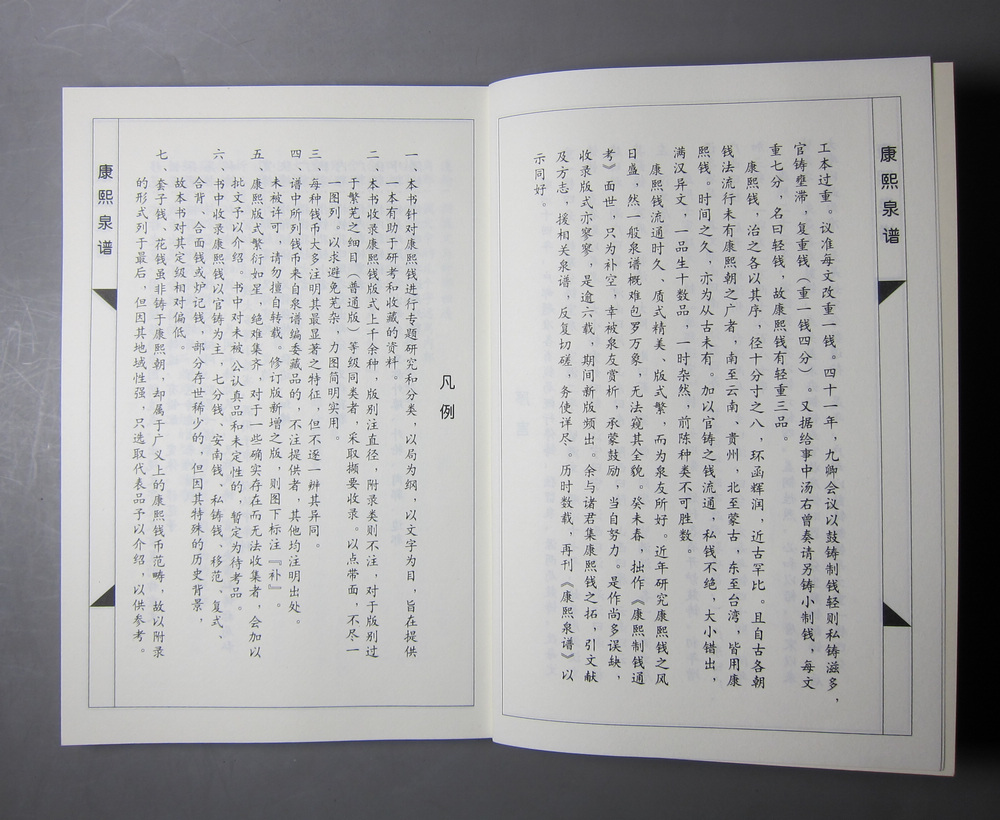 康熙泉谱
工本过重。议准每文改重一钱。四十一年，九卿会议以鼓铸制钱轻则私铸滋多，
官铸壅滞，复重钱（重一钱四分）。又据给事中汤右曾奏请另铸小制钱，每文
重七分，名曰轻钱，故康熙钱有轻重三品。
康熙钱，治之各以其序，径十分寸之八，环函辉润，近古罕比。且自古各朝
钱法流行未有康熙朝之广者，南至云南、贵州，北至蒙古，东至台湾，皆用康
熙钱。时间之久，亦为从古未有。加以官铸之钱流通，私钱不绝，大小错出，
满汉异文，一品生十数品，一时杂然，前陈种类不可胜数。
康熙钱流通时久、质式精美、版式繁，而为泉友所好。近年研究康熙钱之风
日盛，然一般泉谱概难包罗万象，无法窥其全貌。癸未春，拙作《康熙制钱通
考》面世，只为补空，幸被泉友赏析，承蒙鼓励，当自努力。是作尚多误缺，
收录版式亦寥寥，是逾六载，期间新版频出。余与诸君集康熙钱之拓，引文献
及方志，援相关泉谱，反复切磋，务使详尽。历时数载，再刊《康熙泉谱》以
示同好。
凡例
一、本书针对康熙钱进行专题研究和分类，以局为纲，以文字为目，旨在提供
一本有助于研考和收藏的资料。
二、本书收录康熙钱版式上千余种，版别注直径，附录类则不注，对于版别过
于繁芜之细目（普通版）等级同类者，采取撷要收录。以点带面，不尽一
一图列。以求避免芜杂，力图简明实用。
三、每种钱币大多注明其最显著之特征，但不逐一辨其异同。
四、谱中所列钱币来自泉谱编委藏品的，不注提供者，其他均注明出处。
未被许可，请勿擅自转载。修订版新增之版，则图下标注『补』。
五、康熙版式繁衍如星，绝难集齐，对于一些确实存在而无法收集者，会加以
批文予以介绍。书中对未被公认真品和未定性的，暂定为待考品。
六、书中收录康熙钱以官铸为主，七分钱、安南钱、私铸钱、移范、复式、
合背、合面钱或炉记钱，部分存世稀少的，但因其特殊的历史背景，
故本书对其定级相对偏低。
七、套子钱、花钱虽非铸于康熙朝，却属于广义上的康熙钱币范畴，故以附录
的形式列于最后，但因其地域性强，只选取代表品予以介绍，以供参考。
康熙泉谱